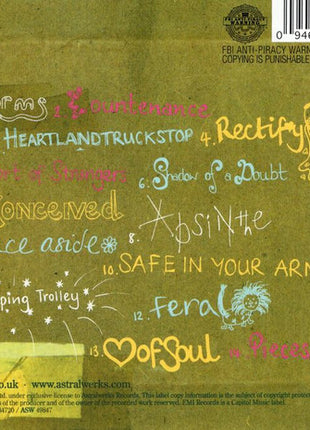 0 946
FBI ANTI-PIRACY WARNING
FBI ANTI-PIRACY WARN
COPYING IS PUNISHABLE
2. Countenance
HEARTLANDTRUCKSTOP 4. Rectify
of Strangers
6. Shadow of a Doubt
conceived
8. Absinthe
ce aside
10. SAFE IN YOUR ARM
ping Trolley
12. Feral
13. OF SOUL
Pieces
o.uk · www.astralwerks.com
Ltd. under exclusive license to Astralwerks Records. This label copy information is the subject of copyright protec
of the producer and of the owner of the recorded work reserved. EMI Records is a Capitol Music label.
84720 / ASW 49847